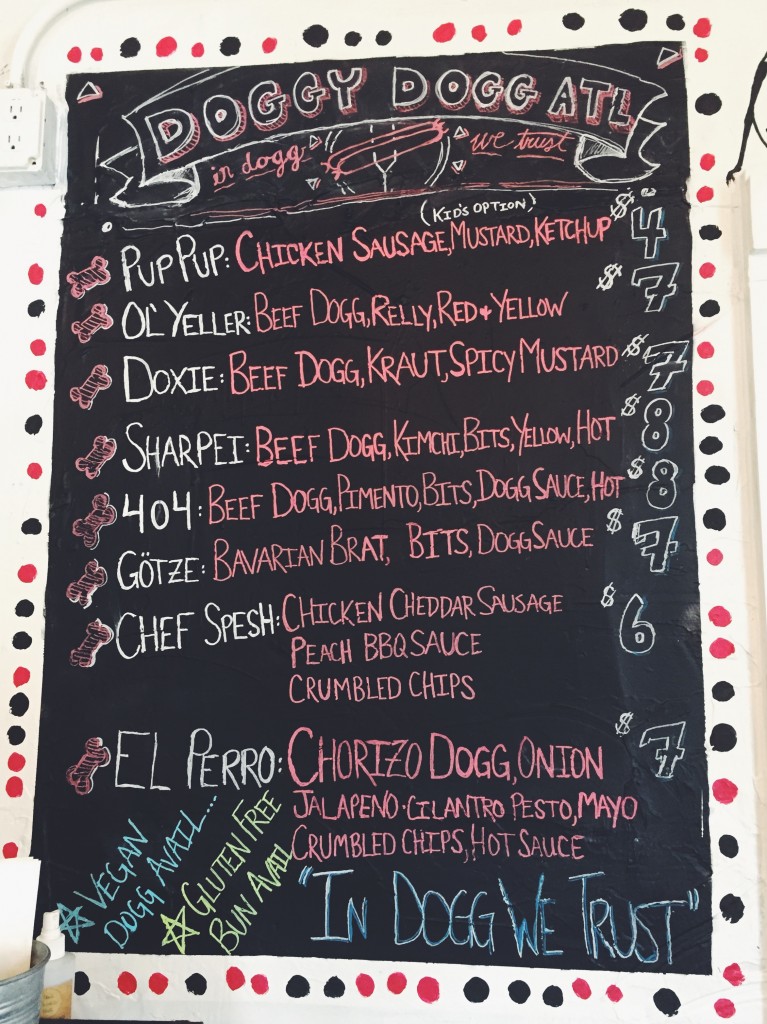 DOGGY DOGG ATL
in dogg we trust
(KID'S OPTION)
PUP PUP: CHICKEN SAUSAGE, MUSTARD, KETCHUP $4
OL' YELLER: BEEF DOGG, RELLY, RED & YELLOW $7
DOXIE: BEEF DOGG, KRAUT, SPICY MUSTARD $7
SHARPEI: BEEF DOGG, KIMCHI, BITS, YELLOW, HOT $8
404: BEEF DOGG, PIMENTO, BITS, DOGG SAUCE, HOT $8
GÖTZE: BAVARIAN BRAT, BITS, DOGG SAUCE $7
CHEF SPESH: CHICKEN CHEDDAR SAUSAGE $6
PEACH BBQ SAUCE
CRUMBLED CHIPS
EL PERRO: CHORIZO DOGG, ONION $7
JALAPENO-CILANTRO PESTO, MAYO
CRUMBLED CHIPS, HOT SAUCE
VEGAN
DOGG AVAIL...
GLUTEN FREE
BUN AVAIL
"IN DOGG WE TRUST"